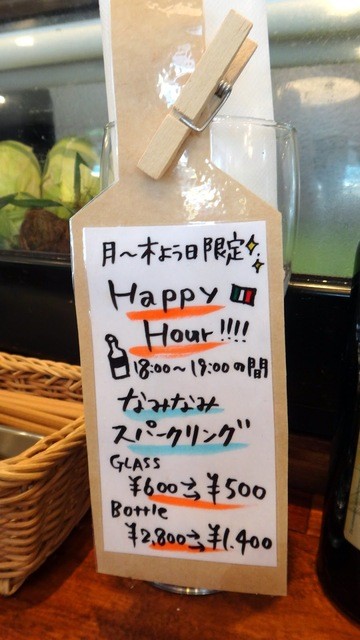 月〜木よう日限定
Happy
Hour!!!!
18:00〜19:00の間
なみなみ
スパークリング
GLASS
¥600→¥500
Bottle
¥2,800→¥1,400